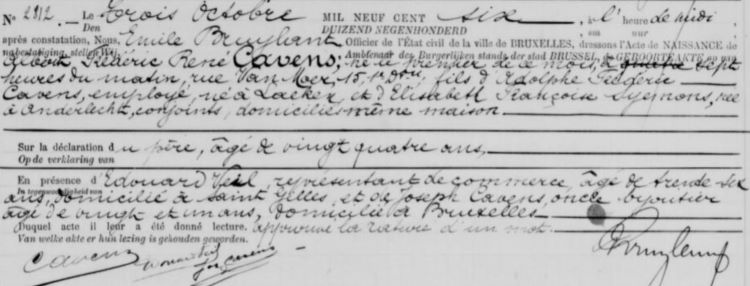 No 2912. Le trois Octobre MIL NEUF CENT six, à l' heure de midi,
Den DUIZEND NEGENHONDERD om uur
après constatation, Nous, Emile Bruylant Officier de l'État civil de la ville de BRUXELLES, dressons l'Acte de NAISSANCE de
nabestatiging, stellen Wij, Ambtenaar des Burgerlijken stands der stad BRUSSEL, de GEBOORTEAKTE op van
Albert Frédéric René Cavens, né le premier de ce mois, à sept
heures du matin, rue Van Moer, 15, fils d'Adolphe Frédéric
Cavens, employé, né à Laeken, et d'Elisabeth Françoise Symons, née
à Anderlecht, conjoints, domiciliés même maison
Sur la déclaration du père, âgé de vingt quatre ans,
Op de verklaring van
En présence d'Edouard Weil, représentant de commerce, âgé de trente six
In tegenwoordigheid van
ans, domicilié à Saint Gilles, et de Joseph Cavens, oncle, bijoutier
âgé de vingt et un ans, domicilié à Bruxelles
Duquel acte il leur a été donné lecture. approuvé la rature d'un mot.
Van welke akte er hun lezing is gehouden geworden.
Cavens Jos Cavens EBruylant